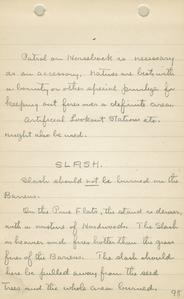 Patrol on Horseback is necessary
as an accessory, Natives are best with
a bounty or other special privilege for
keeping out fires over a definite area.
Artificial Lookout Stations etc.
might also be used.
SLASH.
Slash should not be burned on the
Barrens.
On the Pine Flats, the stand is denser,
with a mixture of Hardwoods. The Slash
is heavier and fires hotter than the grass
fires of the Barrens. The slash should
here be pulled away from the seed
Trees and the whole area burned.
98